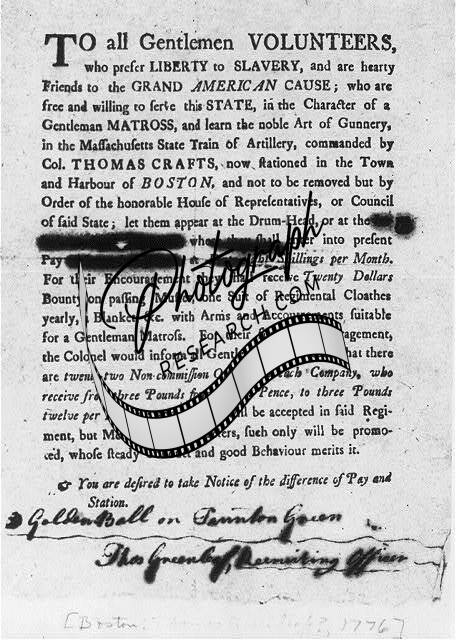 TO all Gentlemen VOLUNTEERS,
who prefer LIBERTY to SLAVERY, and are hearty
Friends to the GRAND AMERICAN CAUSE; who are
free and willing to serve this STATE, in the Character of a
Gentleman MATROSS, and learn the noble Art of Gunnery,
in the Massachusetts State Train of Artillery, commanded by
Col. THOMAS CRAFTS, now stationed in the Town
and Harbour of BOSTON, and not to be removed but by
Order of the honorable House of Representatives, or Council
of said State; let them appear at the Drum-Head, or at the
who shall enter into present
Pay at Shillings per Month.
For their Encouragement they shall receive Twenty Dollars
Bounty on passing one Suit of Regimental Cloathes
yearly, Blanket &c. with Arms and Accoutrements suitable
for a Gentleman Matross. For their
the Colonel would inform Gentle that there
are twenty-two Non-commission Each Company, who
receive from three Pounds Pence, to three Pounds
twelve per be accepted in said Regi-
ment, but such only will be promo-
ted, whose steady and good Behaviour merits it.
☞ You are desired to take Notice of the difference of Pay and
Station.
Golden Ball on Taunton Green
Thos Greenleaf, Recruiting Officer
[Boston 1776]
Photograph
RESEARCH.COM